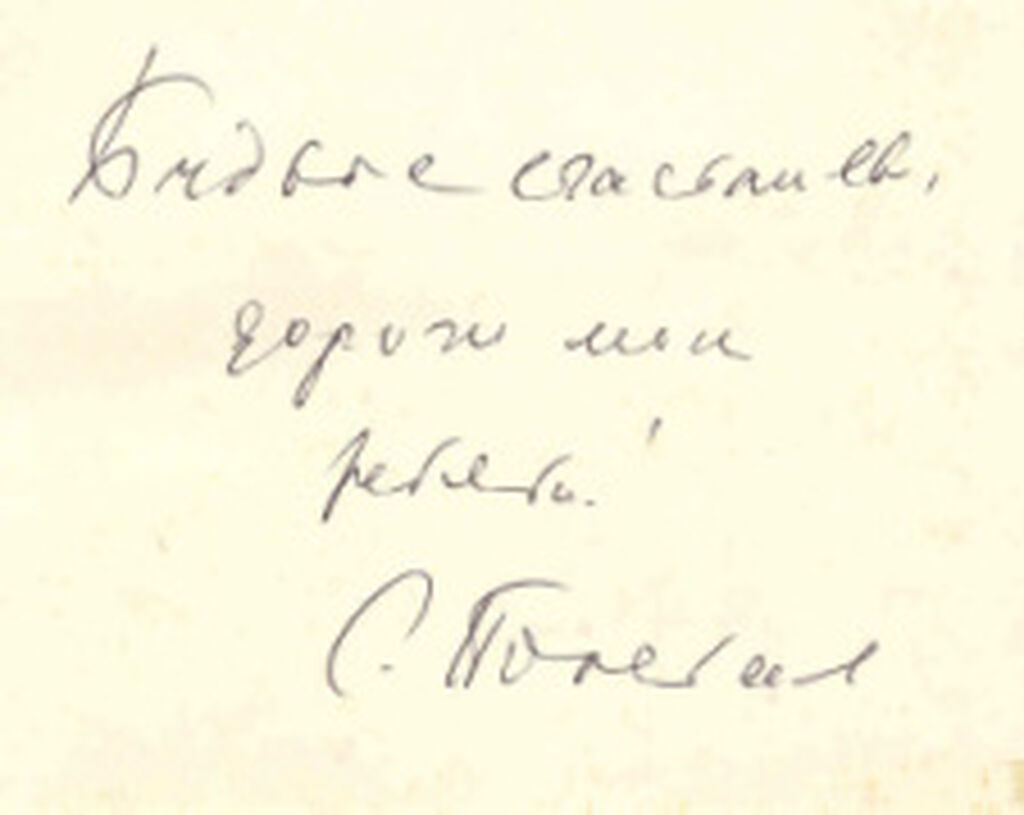 Будьте счастливы,
дорогие мои
ребята!
С.